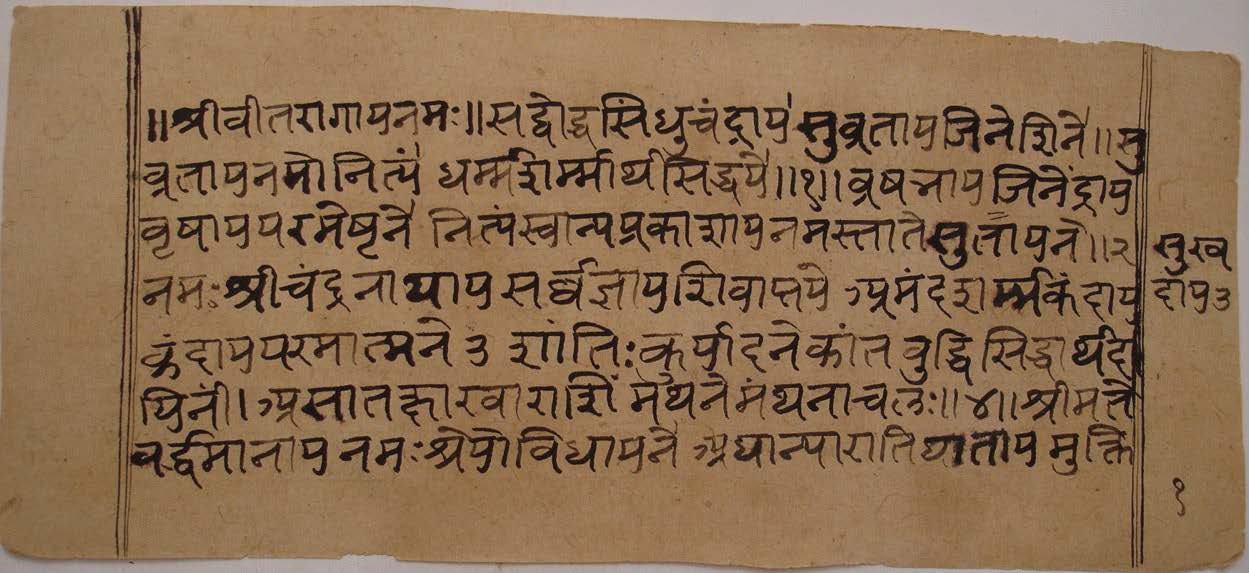 ॥श्रीवीतरागायनमः॥सद्बोद्धसिंधुचंद्राय सुव्रतायजिनेशिने॥सु
व्रतायनमोनित्यं धर्म्मशर्म्मार्थसिद्धये॥१॥वृषभायजिनेंद्राय
वृषायपरमेष्ठने नित्यंस्वान्यप्रकाशायनमस्ताते ॥२
सुख
नमःश्रीचंद्रनाथायसर्व्वज्ञायशिवाप्तये अमंदशर्म्मकंदाय
दाय३
कुंदायपरमात्मने३ शांतिःकुर्यादनेकांतवुद्धिसिद्धार्थदा
यिनीं।अस्तातङ्कारवाराशिं मथनेमंथनाचलः॥४॥श्रीमते
वर्द्धमानायनमःश्रेयोविधायने अघान्यारातिघातायमुक्ति
१